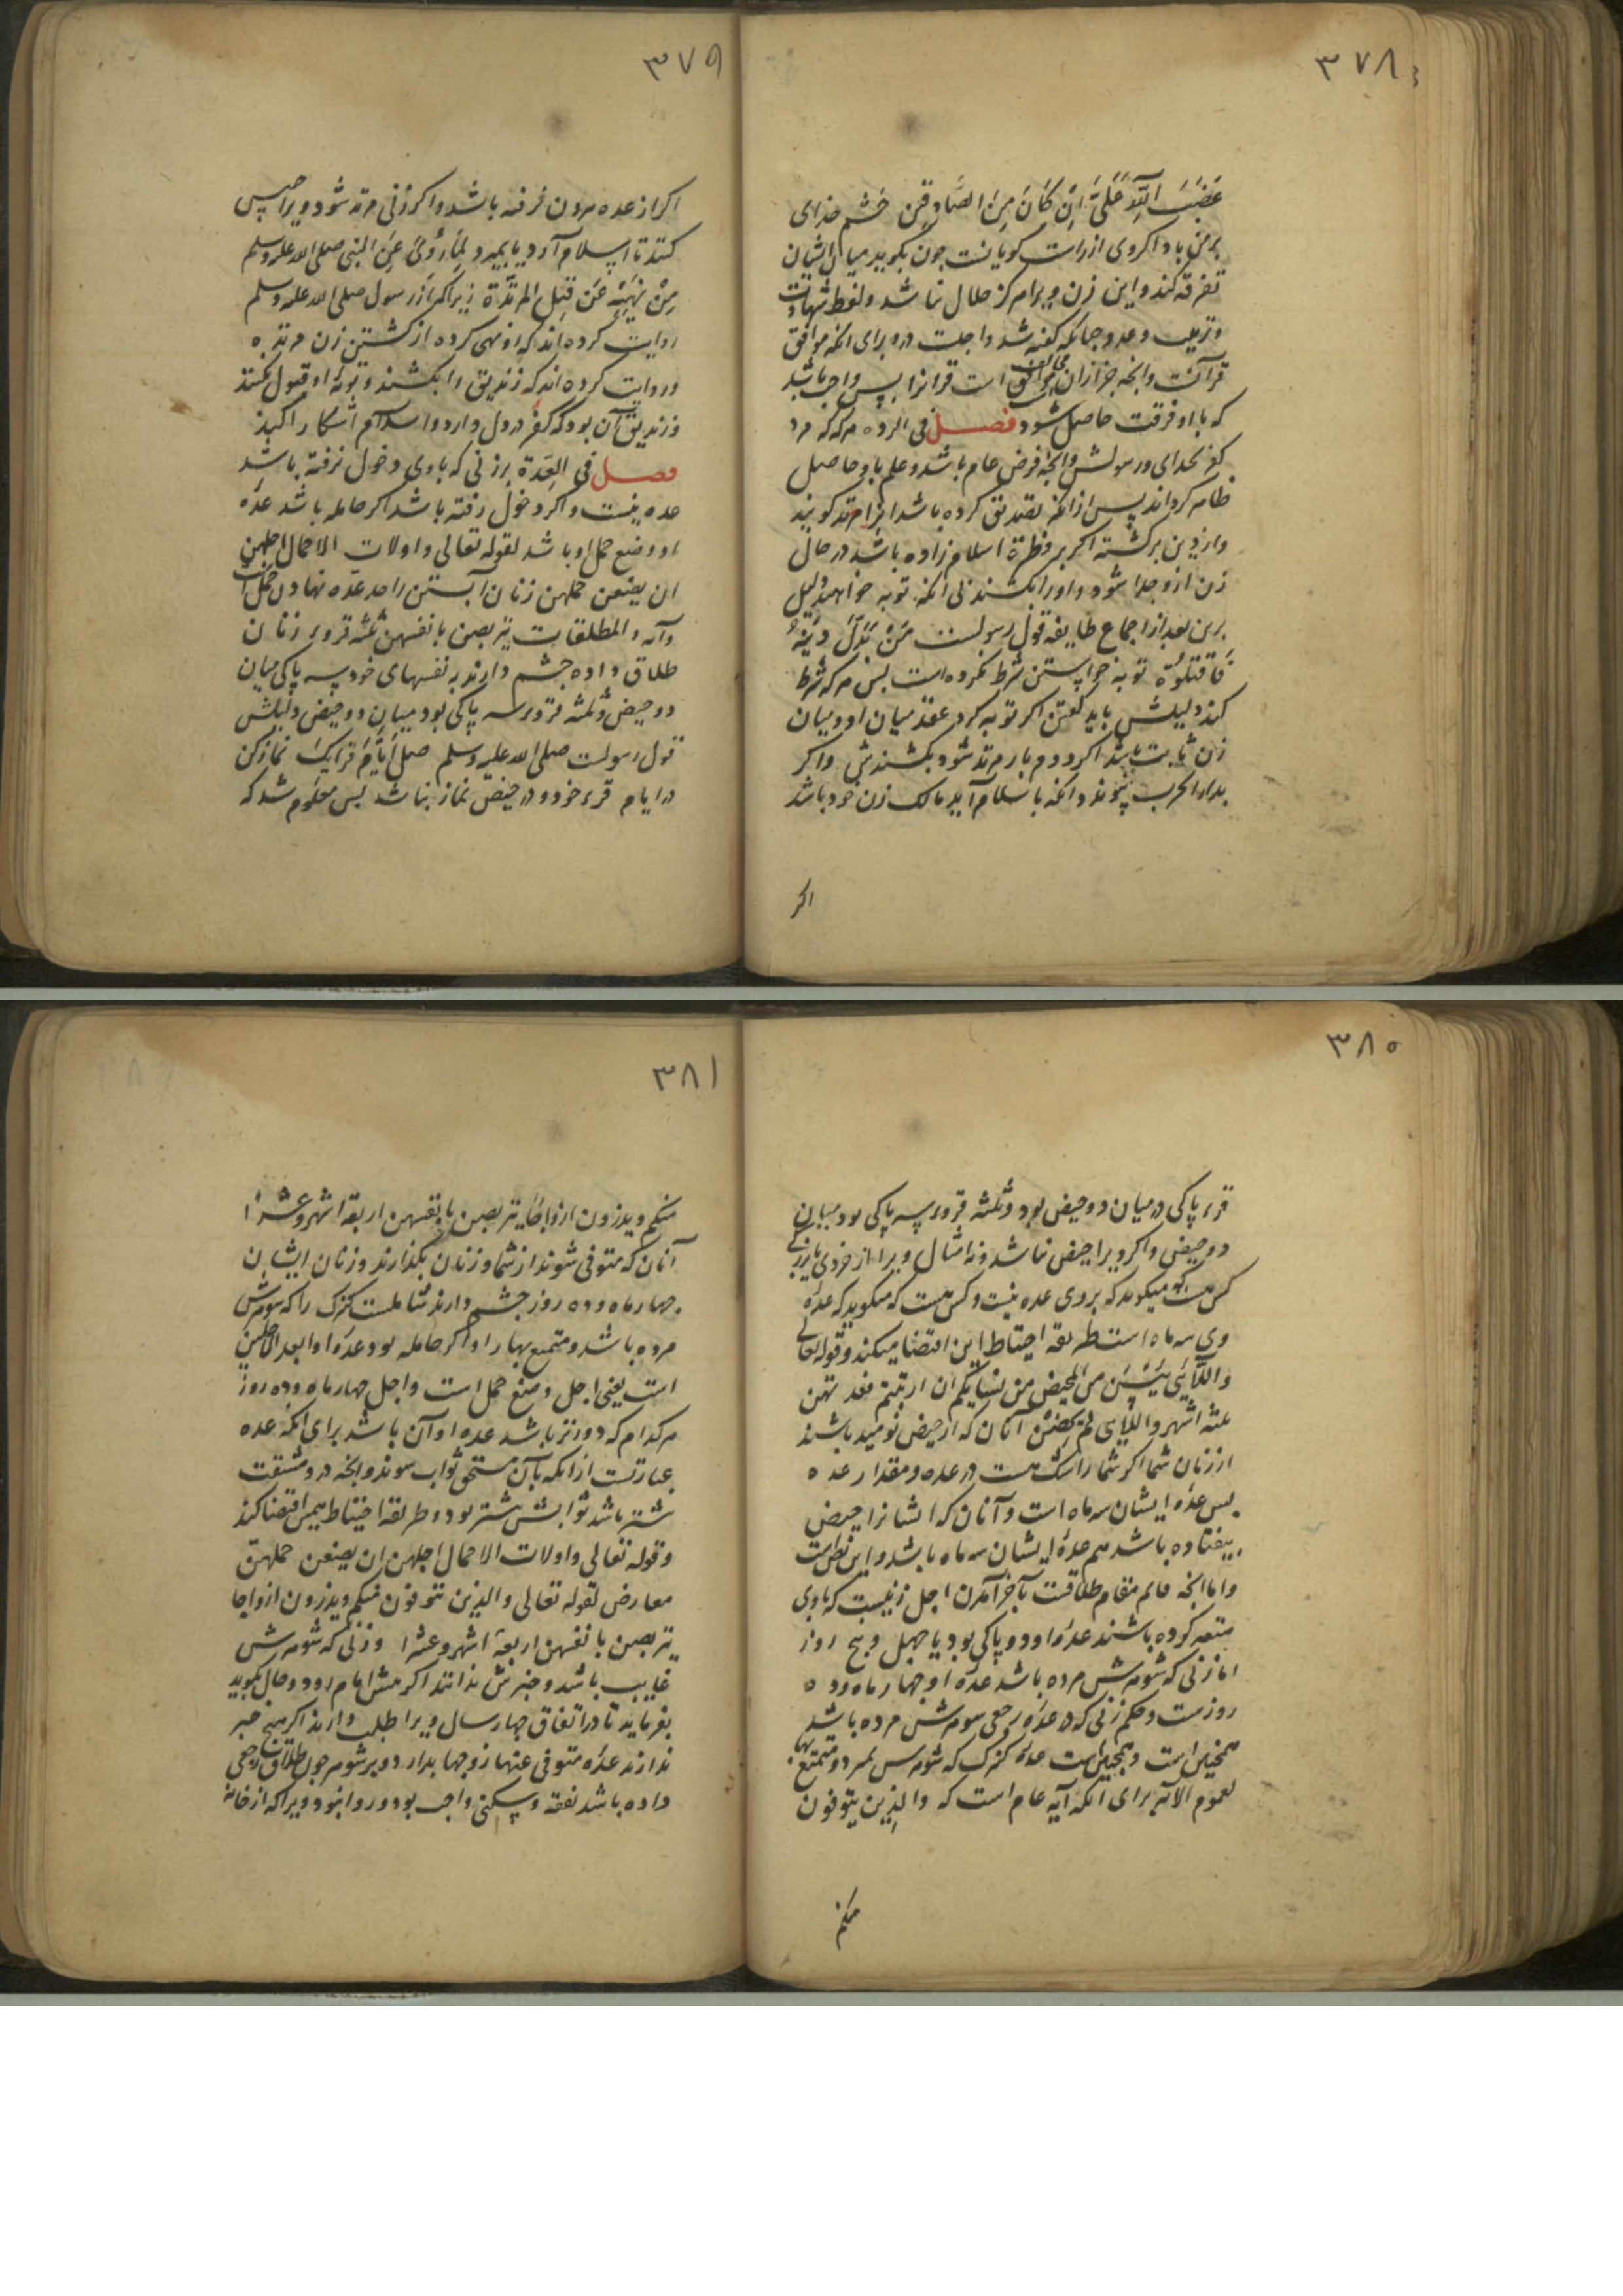 ۳۷۸
غَضَبَ اللّهِ عَلَیَّ اِنْ کَانَ مِنَ الصَّادِقِینَ خشم خدای
برمن باد اکر وی از راست کویانست جون بکوید میان ایشان
تفرقه کند و این زن ویرا هرکز حلال نباشد و لفظ شهادت
و ترتیب و عدد جنانکه کفته شد واجبست درو برای انکه موافق
قرآنست وانجه جز ازان است قرانرا پس واجب باشد
که با او فرقت حاصل شود فصل فی الرده هرکه که مرد
کفر بخدای و رسولش وانجه فرض عام باشد و علم باو حاصل
ظاهر کرداند پس ازانکه تصدیق کرده باشد انرا مرتد کویند
و از دین برکشته اکر بر فطرة اسلام زاده باشد در حال
زن ازو جدا شود و اورا بکشند بی انکه توبه خواهند دلیل
برین بعد از اجماع طایفه قول رسولست مَنْ بَدَّلَ دِینَهُ
فَاقتلُوُه توبه خواستن شرط نکرده است پس هرکه شرط
کند دلیلش باید کفتن اکر توبه کرد عقد میان او و میان
زن ثابت باشد اکر دوم بار مرتد شود بکشندش واکر
بدار الحرب پیوندد وانکه باسلام آید مالک زن خود باشد
اکر
۳۷۹
اکر از عده بیرون نرفته باشد واکر زنی مرتد شود ویرا حبس
کنند تا اسلام آورد یا بمیرد لِمَا رُوِیَ عَنِ النبی صلی الله علیه وسلم
مِنْ نَهیِهِ عَن قتِلِ المرتدّة زیراکه از رسول صلی الله علیه وسلم
روایت کرده اند که او نهی کرده از کشتن زن مرتده
و روایت کرده اند که زندیق را بکشند و توبهٔ او قبول نکنند
و زندیق آن بود که کفر در دل دارد و اسلام آشکارا کند
فصل فی العِدَة بر زنی که با وی دخول نرفته باشد
عده نیست و اکر دخول رفته باشد اکر حامله باشد عدّه
او وضع حمل او باشد لقوله تعالی و اولات الاحمال اجلهن
ان یضعن حملهن زنان آبستن را حد عدّه نهادن حمل است
وآیه والمطلقات یتربصن بانفسهن ثلثه قروء زنان
طلاق داده جشم دارند به نفسهای خود سه پاکی میان
دو حیض و ثلثه قروء سه پاکی بود میان دو حیض دلیلش
قول رسولست صلی الله علیه وسلم صلی اَیّاَمَ قرایکَ نماز کن
در ایام قرء خود و در حیض نماز نباشد پس معلوم شد که
۳۸۰
قرء پاکی در میان دو حیض بود و ثلثه قروء سه پاکی بود میان
دو حیض واکر ویرا حیض نباشد و نه امثال ویرا از خردی یا بزرکی
کس هست که میکوید که بر وی عده نیست و کس هست که میکوید که عدّهٔ
وی سه ماه است طریقهٔ احتیاط این اقتضا میکند و قوله تعالی
واللآئی یَئِسْنَ من المحیض من نسایکم ان ارتبتم فعدتهن
ثلثه اشهر واللآیی لم یحضن آنان که از حیض نومید باشند
از زنان شما اکر شما را شک هست در عده و مقدار عده
پس عدّه ایشان سه ماه است و آنان که ایشانرا حیض
نیفتاده باشد هم عدهٔ ایشان سه ماه باشد و این نص است
و اما انجه قایم مقام طلاقست بآخر آمدن اجل زنیست که با وی
متعه کرده باشند عدّه او دو پاکی بود یا جهل و پنج روز
اما زنی که شوهرش مرده باشد عدّه او جهار ماه و ده
روزست و حکم زنی که در عدّه رجعی شوهرش مرده باشد
همجنین است و همجنین است عدّهٔ کنیزک که شوهرش بمرد و متمتع بها
لعموم الآیه برای انکه آیه عام است که والذِین یتوفون
منکم
۳۸۱
منکم ویذرون ازواجًا یتربصن بانفسهن اربعة اشهر وعشرًا
آنان که متوفی شوند از شما و زنان بکذارند و زنان ایشان
جهار ماه و ده روز جشم دارند شاملست کنیزک را که شوهرش
مرده باشد و متمتع بها را و اکر حامله بود عدّه او ابعد الاجلین
است یعنی اجل وضع حمل است و اجل جهار ماه و ده روز
هرکدام که دورتر باشد عده او آن باشد برای انکه عده
عبارتست ازانکه بآن مستحق ثواب شوند وانجه درو مشقت
بیشتر باشد ثوابش بیشتر بود و طریقه احتیاط همین اقتضا کند
و قوله تعالی و اولات الاحمال اجلهن ان یضعن حملهنّ
معارض لقوله تعالی والذین یتوفون منکم ویذرون ازواجا
یتربصن بانفسهن اربعة اشهر وعشرا و زنی که شوهرش
غایب باشد و خبرش ندانند اکر پیش امام رود و حال بکوید
بفرماید تا در آفاق جهار سال ویرا طلب دارند اکر هیج خبر
ندارند عدّه متوفی عنها زوجها بدارد و بر شوهر جون طلاق رجعی
داده باشد نفقه و سکنی واجب بود و روا نبود ویرا که از خانه